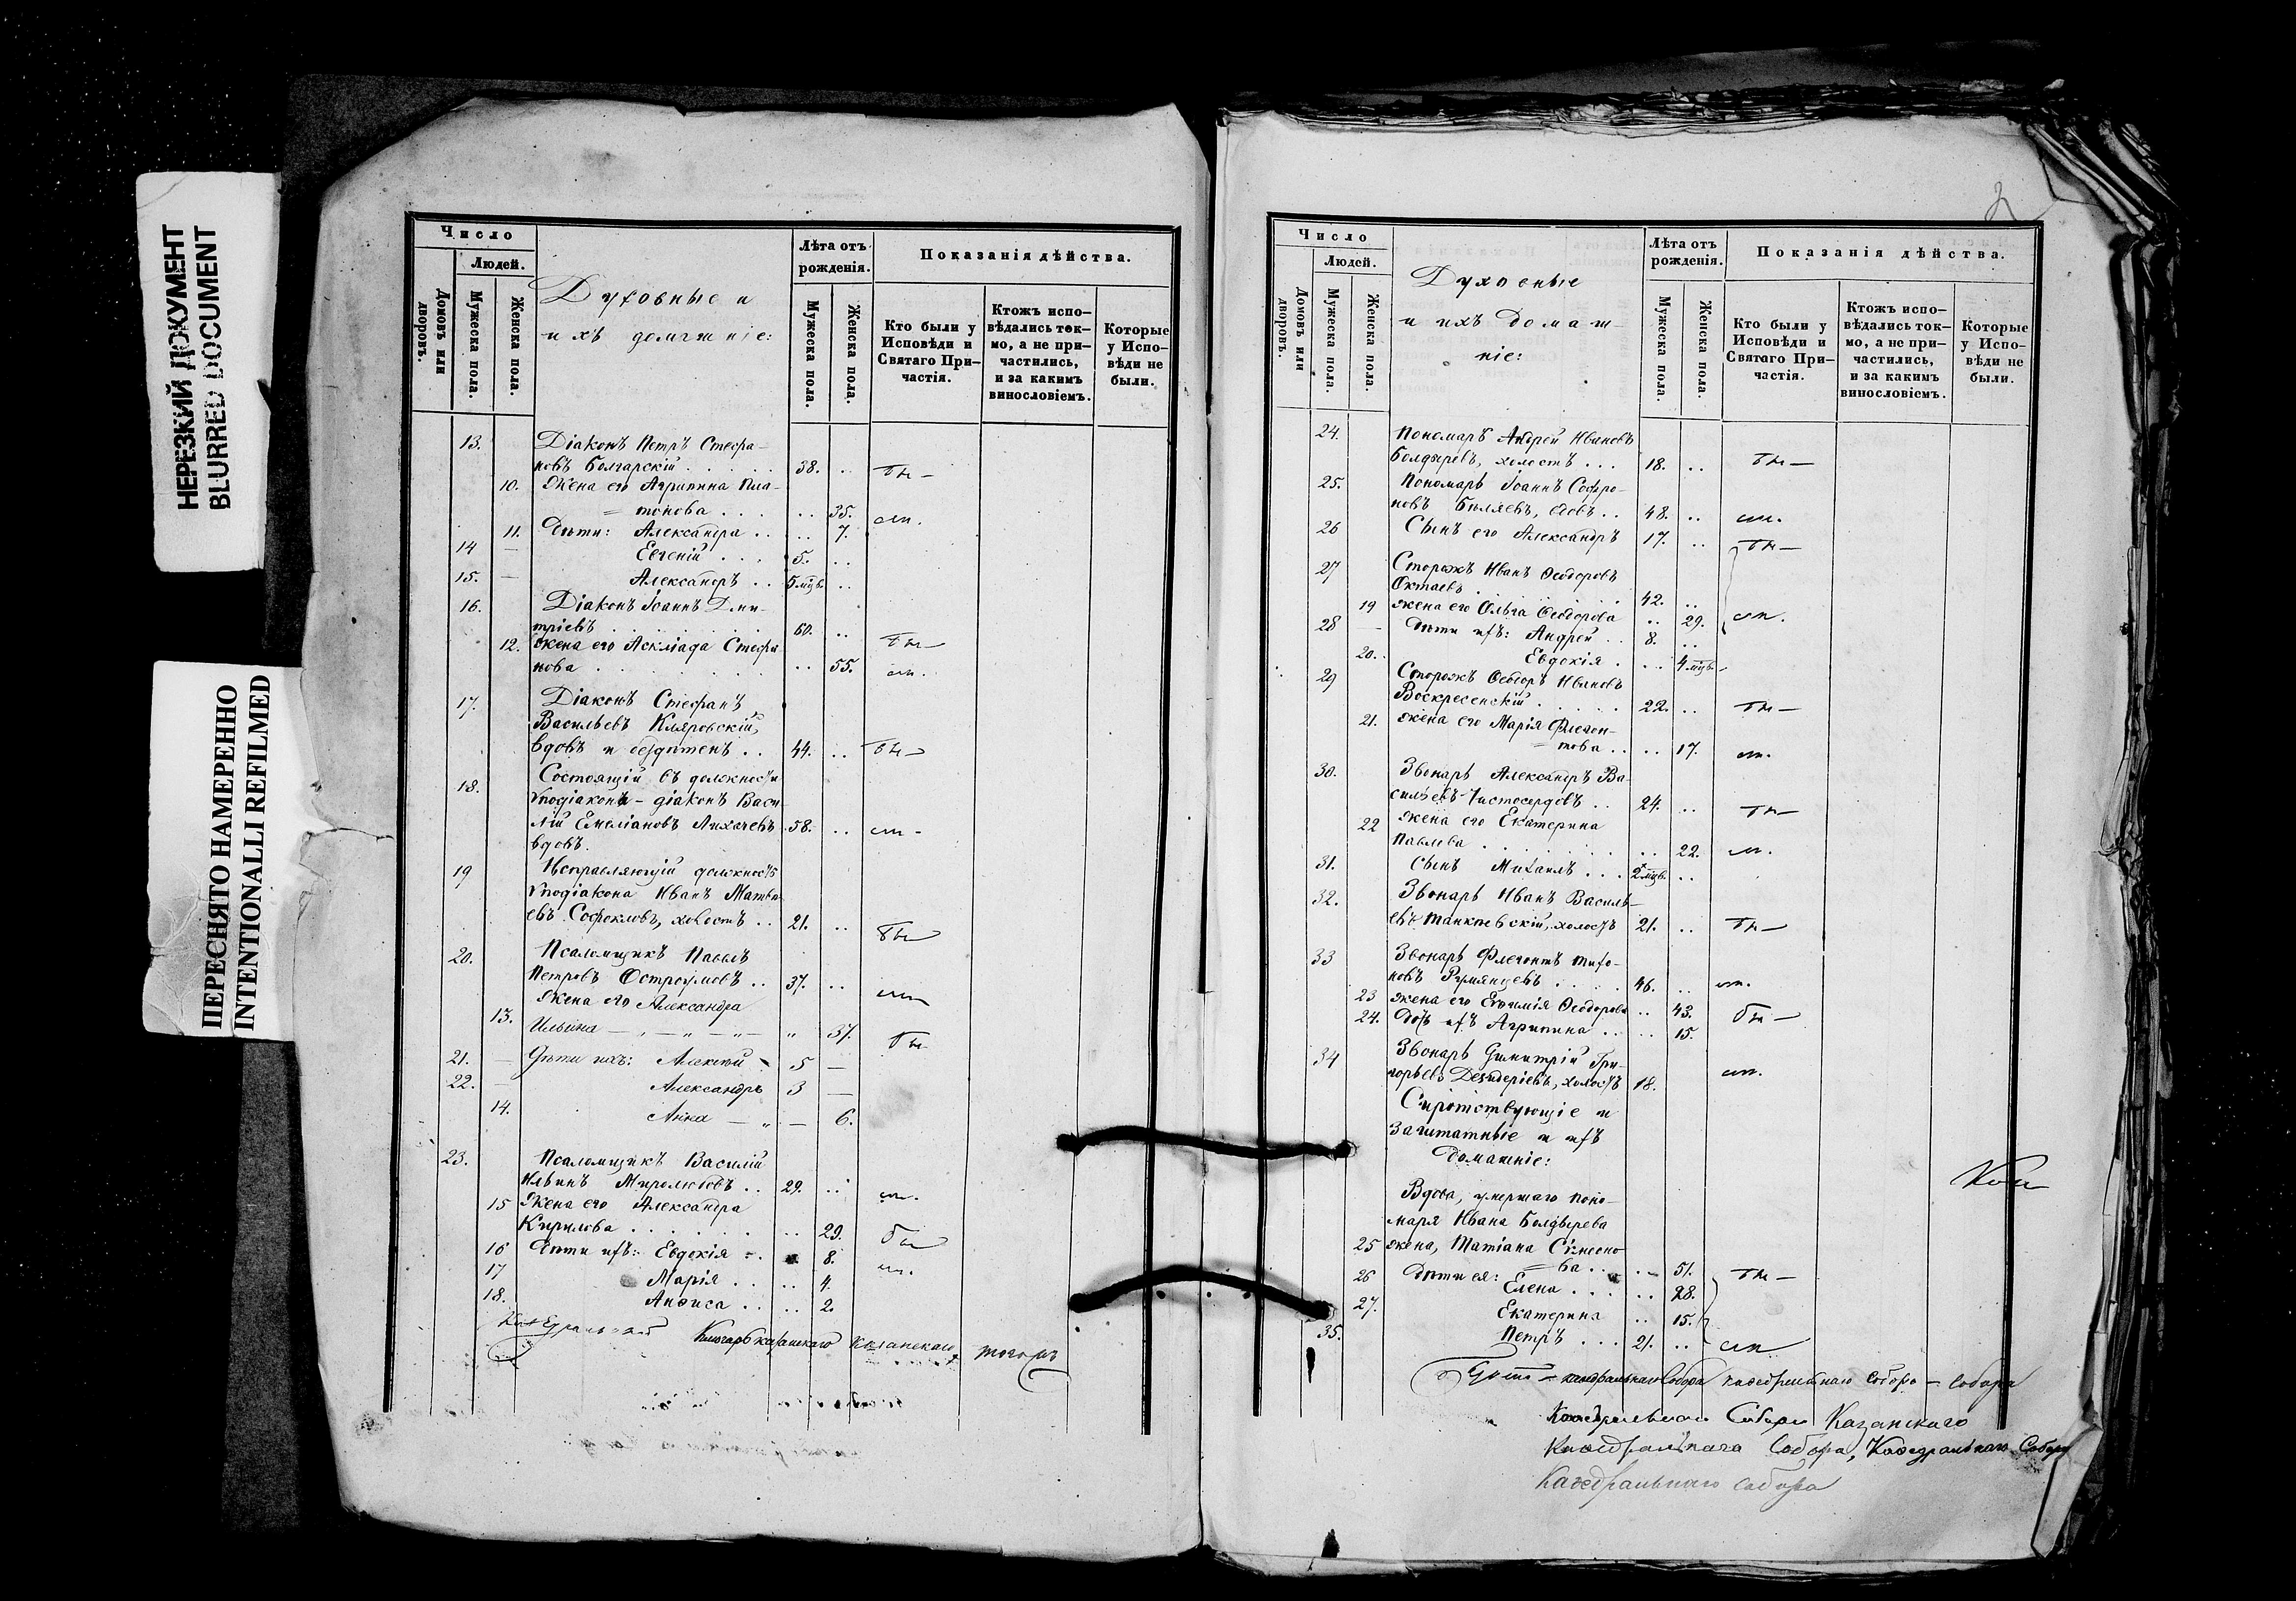 НЕРЕЗКИЙ ДОКУМЕНТ
BLURRED DOCUMENT
ПЕРЕСНЯТО НАМЕРЕННО
INTENTIONALLI REFILMED
Число
Людей.
Домовъ или дворовъ.
Мужеска пола.
Женска пола.
Духовные и
ихъ домашніе:
Лѣта отъ рожденія.
Мужеска пола.
Женска пола.
Показанія дѣйства.
Кто были у Исповѣди и Святаго При-частія.
Ктожъ испо-вѣдались ток-мо, а не при-частились, и за какимъ винословіемъ.
Которые у Испо-вѣди не были.
13. Діаконъ Петръ Стефа-
новъ Болгарскій . . . . 38. .. бы
10. Жена его Агрипина Пла-
= тонова . . . .. 35.
11. Дѣти: Александра .. .. 7.
14 — Евгеній . . . 5. ..
15. — Александръ .. 5 мцъ. ..
16. Діаконъ Іоаннъ Дми-
тріевъ . . . . . . 60. .. бы
12. Жена его Аскліада Стефа
нова . . . . . .. 55.
17. Діаконъ Стефанъ
Васильевъ Кляровскій,
вдовъ и бездѣтенъ .. 44. .. бы
18. Состоящій въ должности
Уподіакона – діаконъ Васи-
лій Емеліановъ Лихачевъ 58. ..
вдовъ.
19 Исправляющій должность
Уподіакона Иванъ Матвѣ-
евъ Софокловъ, холостъ .. 21. .. бы
20. Псаломщикъ Павелъ
Петровъ Остроумовъ .. 37. ..
Жена его Александра
13. Ильина — „ — „ — „ 37. бы
21. — Дѣти ихъ: Алексѣй 5 —
22. — Александръ 3 —
14. Анна — „ — 6.
23. Псаломщикъ Василій
Ильинъ Миролюбовъ .. 29. ..
15 Жена его Александра
Кирилова . . . . . .. 29. бы
16 Дѣти ихъ: Евдокія .. 8.
17 Марія . . .. 4.
18. Анѳиса .. .. 2.
Казанскаго
Число
Людей.
Домовъ или дворовъ.
Мужеска пола.
Женска пола.
Духовные
и ихъ домаш-
ніе:
Лѣта отъ рожденія.
Мужеска пола.
Женска пола.
Показанія дѣйства.
Кто были у Исповѣди и Святаго При-частія.
Ктожъ испо-вѣдались ток-мо, а не при-частились, и за какимъ винословіемъ.
Которые у Испо-вѣди не были.
24. Пономарь Андрей Ивановъ
Болдыревъ, холостъ ... 18. .. бы —
25. Пономарь Іоаннъ Софро-
новъ Биляевъ, вдовъ .. 48. ..
26 Сынъ его Александръ 17. .. бы —
27 Сторожъ Иванъ Ѳеодоровъ
Октаевъ . . . . . . 42. ..
19 жена его Ольга Ѳеодорова .. 29.
28 — Дѣти ихъ: Андрей .. 8. ..
20. Евдокія . .. 4 мцъ.
29 Сторожъ Ѳеодоръ Ивановъ
Воскресенскій . . . . 22. .. бы —
21. жена его Марія Флегон-
= това .. .. 17.
30. Звонарь Александръ Ва-
сильевъ Чистосердовъ .. 24. .. бы —
22 жена его Екатерина
Павлова . . . . . .. 22.
31. Сынъ Михаилъ ... 2 мцъ. ..
32. Звонарь Иванъ Василь-
евъ Танкѣевскій, холостъ 21. .. бы —
33 Звонарь Флегонтъ Тихо-
новъ Румянцевъ . . . . 46. ..
23 жена его Евфимія Ѳеодорова .. 43. бы —
24. Дочь ихъ Агрипина .. .. 15.
34 Звонарь Димитрій Гри-
горьевъ Дезидеріевъ, холостъ 18.
Сиротствующіе и
заштатные и ихъ
домашніе:
Вдова, умершаго поно-
маря Ивана Болдырева
25 жена, Татіана Сѵмеоно
= ва .. .. 51. бы —
26 Дѣти ея: Елена . . . .. 28.
27. Екатерина .. 15.
35. Петръ ... 21. ..
каѳедральнаго Собора каѳедральнаго собора — собора
Каѳедральнаго Собора Казанскаго
Каѳедральнаго Собора, Каѳедральнаго Собора
Каѳедральнаго собора